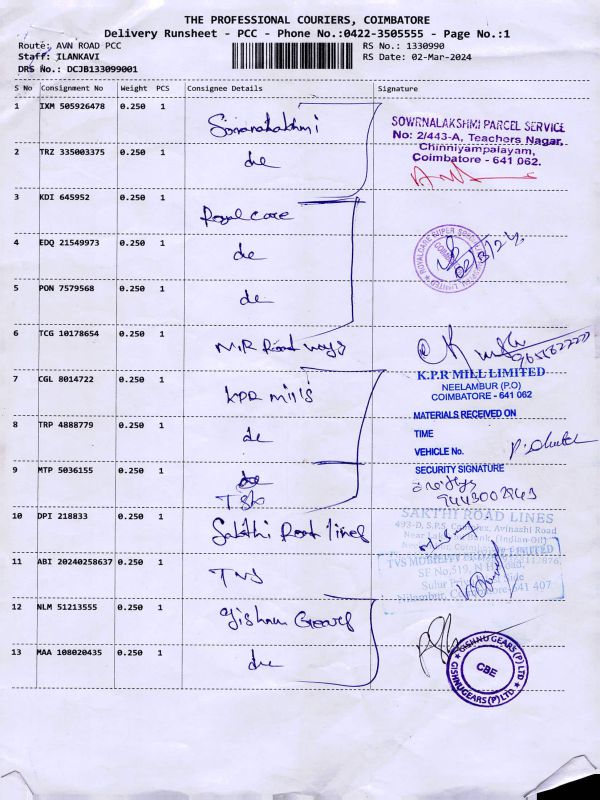 THE PROFESSIONAL COURIERS, COIMBATORE
Delivery Runsheet - PCC - Phone No.:0422-3505555 - Page No.:1
Route: AVN ROAD PCC
RS No.: 1330990
Staff: ILANKAVI
RS Date: 02-Mar-2024
DRS No.: DCJB133099001
S No Consignment No Weight PCS Consignee Details Signature
1 IXM 505926478 0.250 1
SOWRNALAKSHMI PARCEL SERVICE
No: 2/443-A, Teachers Nagar,
Chinniyampalayam,
Coimbatore - 641 062.
2 TRZ 335003375 0.250 1 do
3 KDI 645952 0.250 1 Royal care
4 EDQ 21549973 0.250 1 do
02/3/24
5 PON 7579568 0.250 1 do
6 TCG 10178654 0.250 1 M.R Road ways
7 CGL 8014722 0.250 1 KPR mills
K.P.R MILL LIMITED
NEELAMBUR (P.O)
COIMBATORE - 641 062
MATERIALS RECEIVED ON
8 TRP 4888779 0.250 1 do
TIME
VEHICLE No.
9 MTP 5036155 0.250 1
SECURITY SIGNATURE
10 DPI 218833 0.250 1 Sakthi Road lines
SAKTHI ROAD LINES
493-D, S.P.S. Complex, Avinashi Road
11 ABI 20240258637 0.250 1 TVS
TVS MOBILITY
LIMITED
SF No,519,
Sulur
641 407
12 NLM 51213555 0.250 1 Gishnu Gears
13 MAA 108020435 0.250 1 do
GISHNU GEARS (P) LTD
CBE
GISHNU GEARS (P) LTD